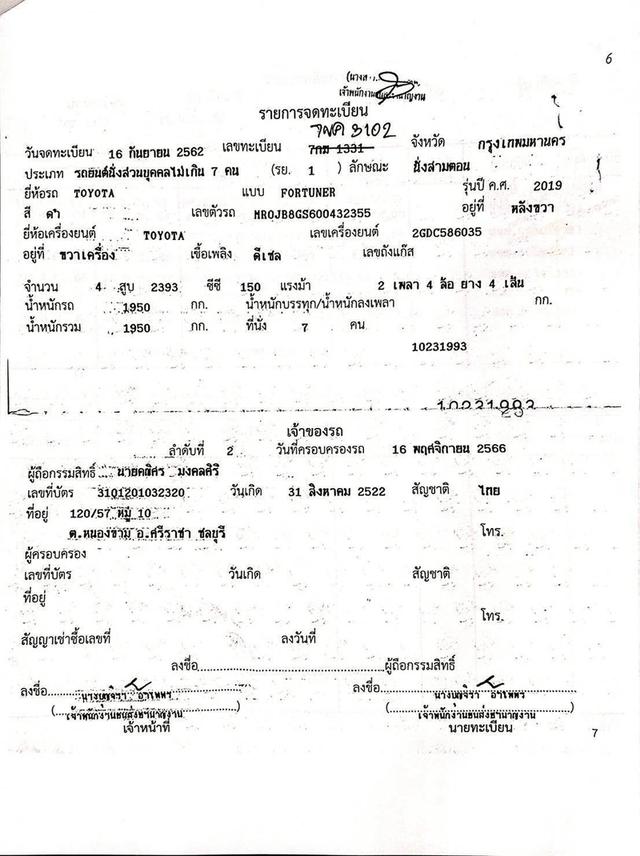 6
(นางส
เจ้าพนักงานขนส่งชำนาญงาน
รายการจดทะเบียน
3102
วันจดทะเบียน 16 กันยายน 2562 เลขทะเบียน 7กฆ 1331 จังหวัด กรุงเทพมหานคร
ประเภท รถยนต์นั่งส่วนบุคคลไม่เกิน 7 คน (รย. 1 ) ลักษณะ นั่งสามตอน
ยี่ห้อรถ TOYOTA แบบ FORTUNER รุ่นปี ค.ศ. 2019
สี ดำ เลขตัวรถ MR0JB8GS600432355 อยู่ที่ หลังขวา
ยี่ห้อเครื่องยนต์ TOYOTA เลขเครื่องยนต์ 2GDC586035
อยู่ที่ ขวาเครื่อง เชื้อเพลิง ดีเซล เลขถังแก๊ส
จำนวน 4 สูบ 2393 ซีซี 150 แรงม้า 2 เพลา 4 ล้อ ยาง 4 เส้น
น้ำหนักรถ 1950 กก. น้ำหนักบรรทุก/น้ำหนักลงเพลา กก.
น้ำหนักรวม 1950 กก. ที่นั่ง 7 คน
10231993
เจ้าของรถ
ลำดับที่ 2 วันที่ครอบครองรถ 16 พฤศจิกายน 2566
ผู้ถือกรรมสิทธิ์ นาย มงคลศิริ
เลขที่บัตร 3101201032320 วันเกิด 31 สิงหาคม 2522 สัญชาติ ไทย
ที่อยู่ 120/57 หมู่ 10
ต.หนองขาม อ.ศรีราชา ชลบุรี โทร.
ผู้ครอบครอง
เลขที่บัตร วันเกิด สัญชาติ
ที่อยู่
โทร.
สัญญาเช่าซื้อเลขที่ ลงวันที่
ลงชื่อ ผู้ถือกรรมสิทธิ์
ลงชื่อ ลงชื่อ
(เจ้าพนักงานขนส่งชำนาญงาน) (เจ้าพนักงานขนส่งชำนาญงาน)
เจ้าหน้าที่ นายทะเบียน
7